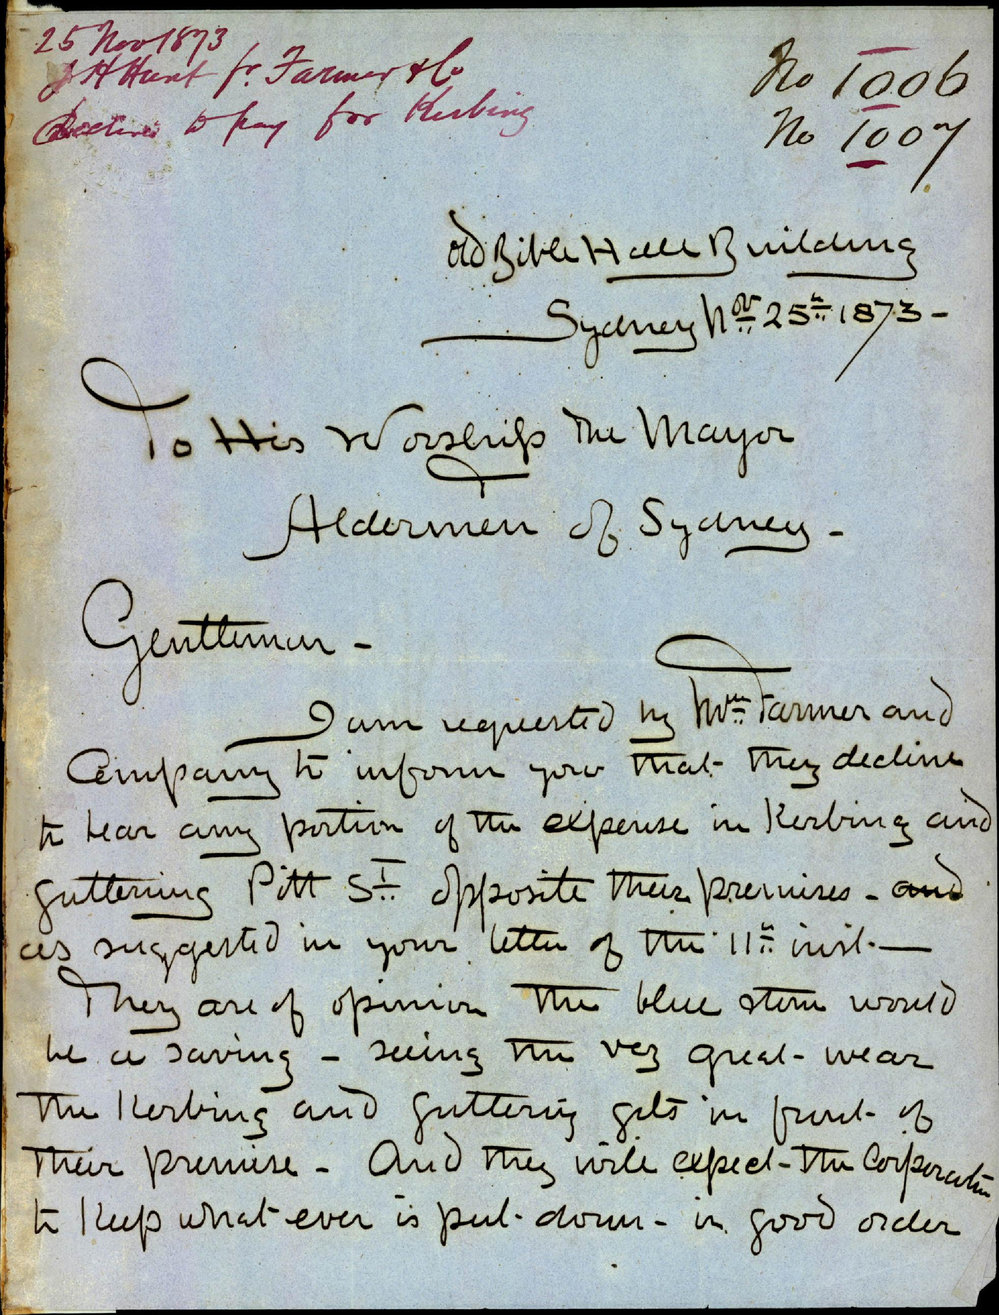 25 Nov 1873
J H Hunt for Farmer & Co
Decline to pay for Kerbing
No 1006
No 1007
Old Bible Hall Building
Sydney Nov 25th 1873 -
To His Worship The Mayor
Aldermen of Sydney -
Gentleman -
I am requested by Wm Farmer and
Company to inform you that they decline
to bear any portion of the expense in Kerbing and
guttering Pitt St opposite their premises - and
as suggested in your letter of the 11th inst. —
They are of opinion the blue stone would
be a saving - seeing the very great wear
the Kerbing and guttering gets in front of
their premise - And they will expect the Corporation
to Keep what ever is put down - in good order